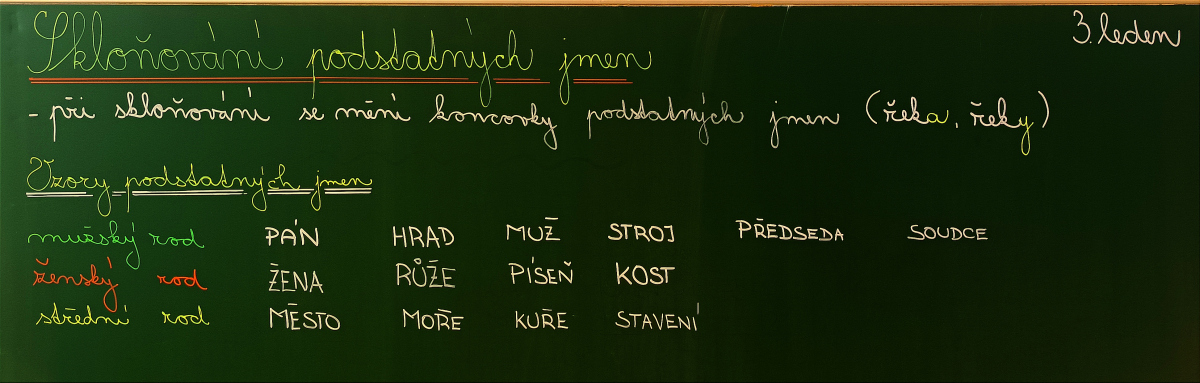 3. leden
Skloňování podstatných jmen
- při skloňování se mění koncovky podstatných jmen (řeka, řeky)
Vzory podstatných jmen
mužský rod PÁN HRAD MUŽ STROJ PŘEDSEDA SOUDCE
ženský rod ŽENA RŮŽE PÍSEŇ KOST
střední rod MĚSTO MOŘE KUŘE STAVENÍ